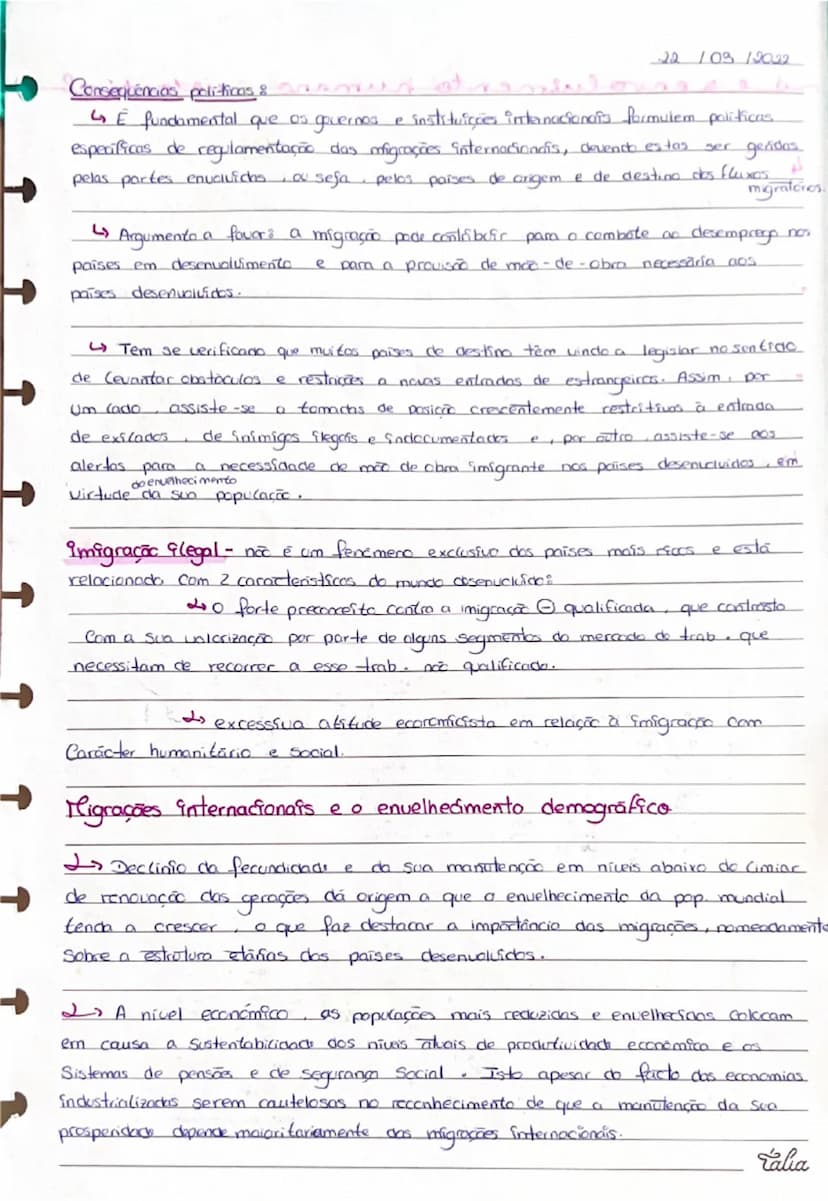 22 / 03 / 2022
Consequências políticas:
↳ É fundamental que os governos e instituições internacionais formulem políticas
específicas de regulamentação das migrações internacionais, devendo estas ser geridas
pelas partes envolvidas, ou seja, pelos países de origem e de destino dos fluxos
migratórios.
↳ Argumento a favor: a migração pode contribuir para o combate ao desemprego nos
países em desenvolvimento e para a provisão de mão-de-obra necessária aos
países desenvolvidos.
↳ Tem se verificado que muitos países de destino têm vindo a legislar no sentido
de levantar obstáculos e restrições a novas entradas de estrangeiros. Assim, por
um lado, assiste-se a tomadas de posição crescentemente restritivas à entrada
de exilados, de inimigos ilegais e indocumentados e, por outro, assiste-se aos
alertas para a necessidade de mão de obra imigrante nos países desenvolvidos, em
do envelhecimento
virtude da sua população.
Imigração ilegal - não é um fenómeno exclusivo dos países mais ricos e está
relacionado com 2 características do mundo desenvolvido:
↳ O forte preconceito contra a imigração ⊖ qualificada, que contrasta
com a sua valorização por parte de alguns segmentos do mercado do trab. que
necessitam de recorrer a esse trab. não qualificado.
↳ excessiva atitude economicista em relação à imigração com
carácter humanitário e social.
Migrações internacionais e o envelhecimento demográfico
↳ Declínio da fecundidade e da sua manutenção em níveis abaixo do limiar
de renovação das gerações dá origem a que o envelhecimento da pop. mundial
tenda a crescer, o que faz destacar a importância das migrações, nomeadamente
sobre a estrutura etárias dos países desenvolvidos.
↳ A nível económico, as populações mais reduzidas e envelhecidas colocam
em causa a sustentabilidade dos níveis atuais de produtividade económica e os
sistemas de pensão e de segurança social. Isto apesar do facto das economias
industrializadas serem cautelosas no reconhecimento de que a manutenção da sua
prosperidade depende maioritariamente das migrações internacionais.
Tália